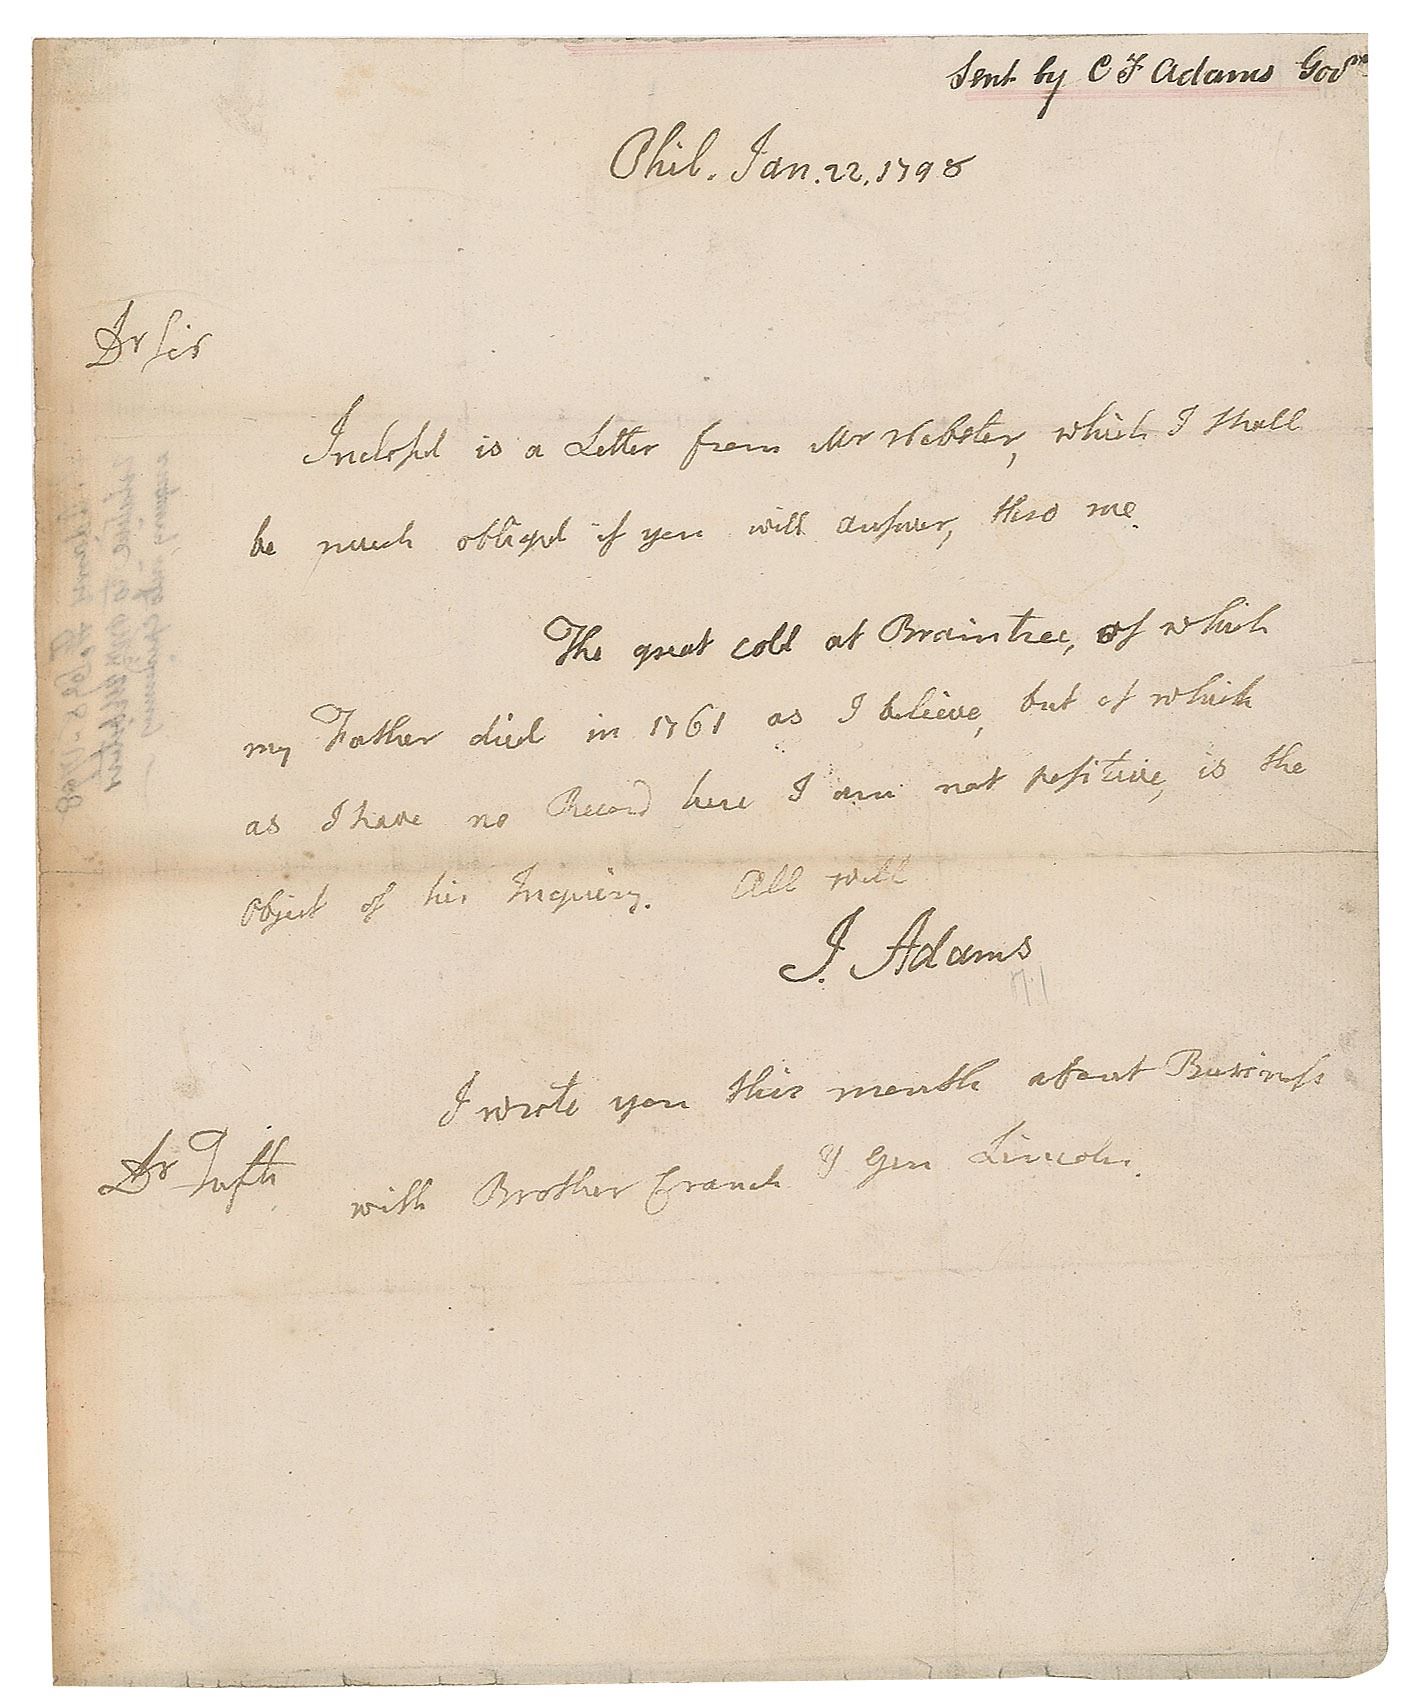 Sent by C F Adams Gov
Phil. Jan. 22. 1798
Dr Sir
Inclosed is a Letter from Mr Webster, which I shall
be much obliged if you will answer, thro me.
The great cold at Braintree, of which
my Father died in 1761 as I believe, but of which
as I have no Record here I am not positive, is the
object of his Inquiry. All well
J. Adams
I wrote you this month about Business
Dr Tufts with Brother Cranch & Gen Lincoln.